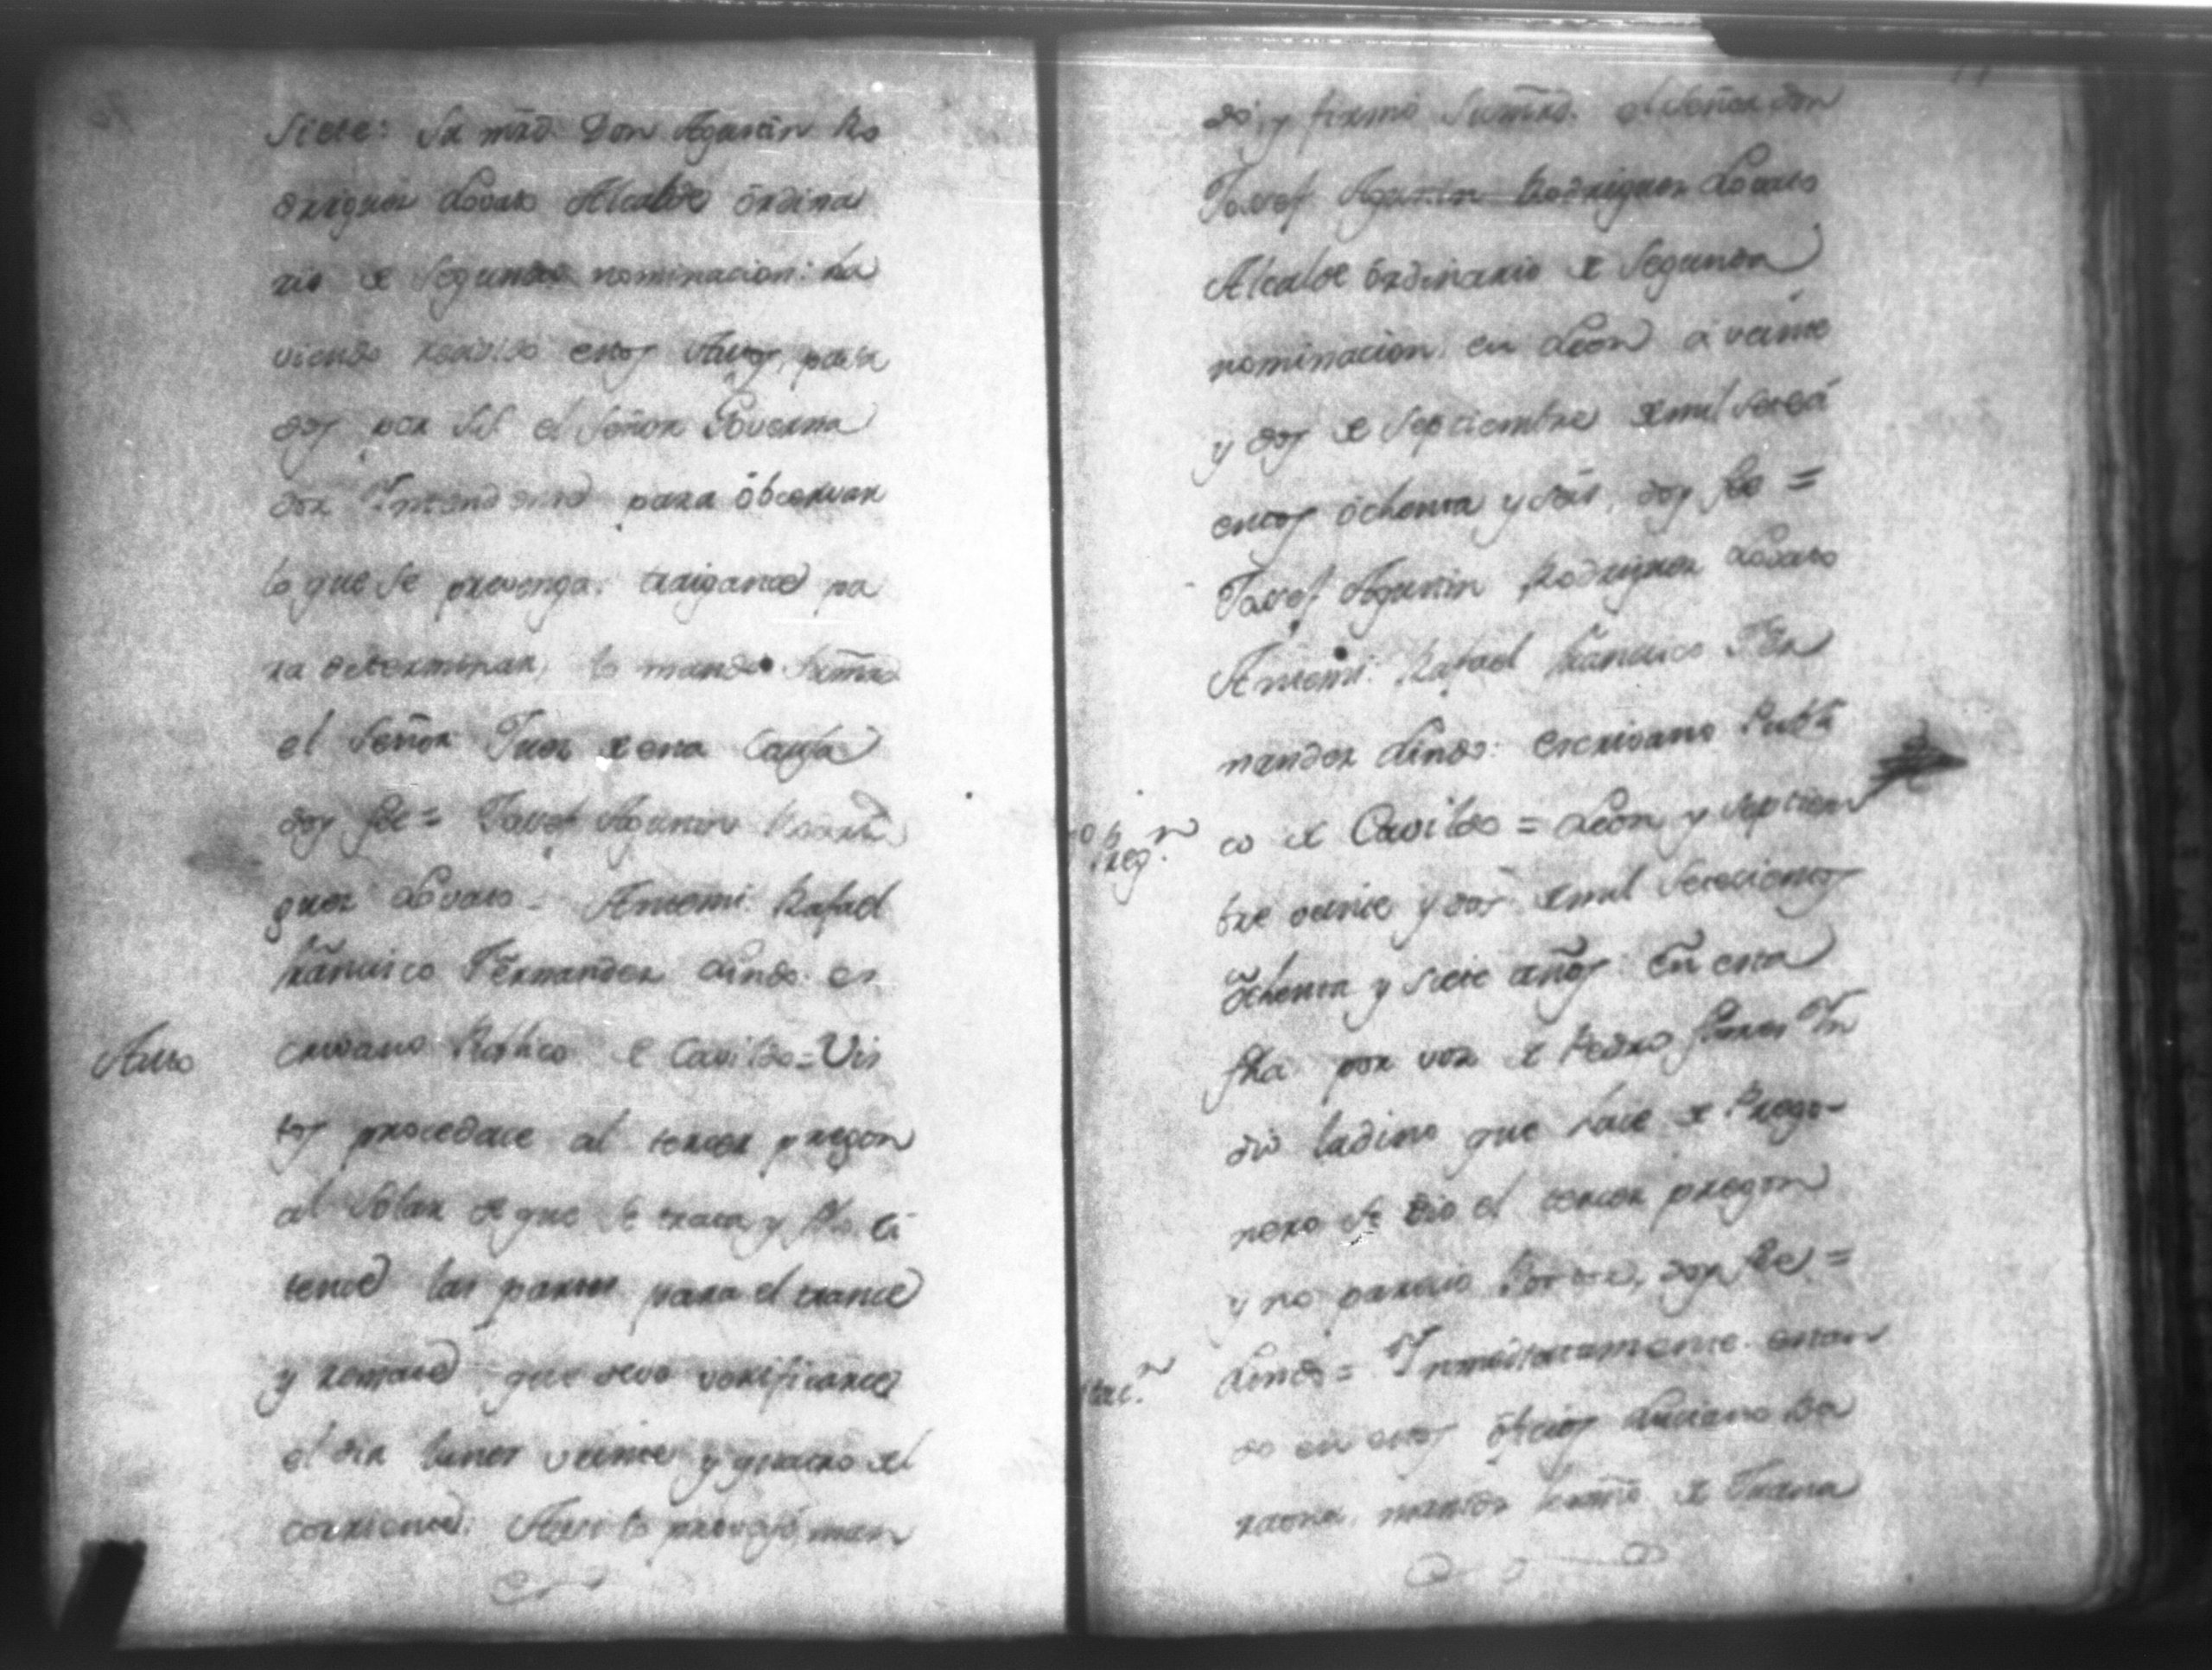 Siete: Su mrd. Don Agustin Ro
driguez Lovato Alcalde ordina
rio de segunda nominacion: ha
viendo recivido estos Autos, pasa
dos por si el Señor Governa
dor Intendente para obcervar
lo que se prevenga. traigance pa
ra determinar, lo mandó su mrd
el Señor Juez de esta Causa
doy fee = Josef Agustin Rodri
guez Lovato = Antemi. Rafael
Francisco Fernandez Lindo. es
Auto
crivano Publico de Cavildo = Vis
tos procedace al tercer pregon
al Solar de que se trata y fho. ci
tence las partes para el trance
y remate que deve verificarce
el dia lunes veinte y quatro del
corriente. Asi lo proveyó, man
dó, y firmó su mrd. el Señor Don
Josef Agustin Rodriguez Lovato
Alcalde ordinario de Segunda
nominacion en Leon á veinte
y dos de Septiembre de mil seteci
entos ochenta y seis, doy fee =
Josef Agustin Rodriguez Lovato
Antemi: Rafael Francisco Fer
nandez Lindo: escrivano Publi
preg.n
co de Cavildo = Leon y Septiem
bre veinte y dos de mil setecientos
ochenta y siete años. En esta
fha por voz de Pedro Flores In
dio ladino que hace de Prego
nero se dio el tercer pregon
y no parecio Postor, doy fee =
Lindo = Inmediatamente estan
do en estos oficios Luciano Ba
raona, marido lexmo. de Juana